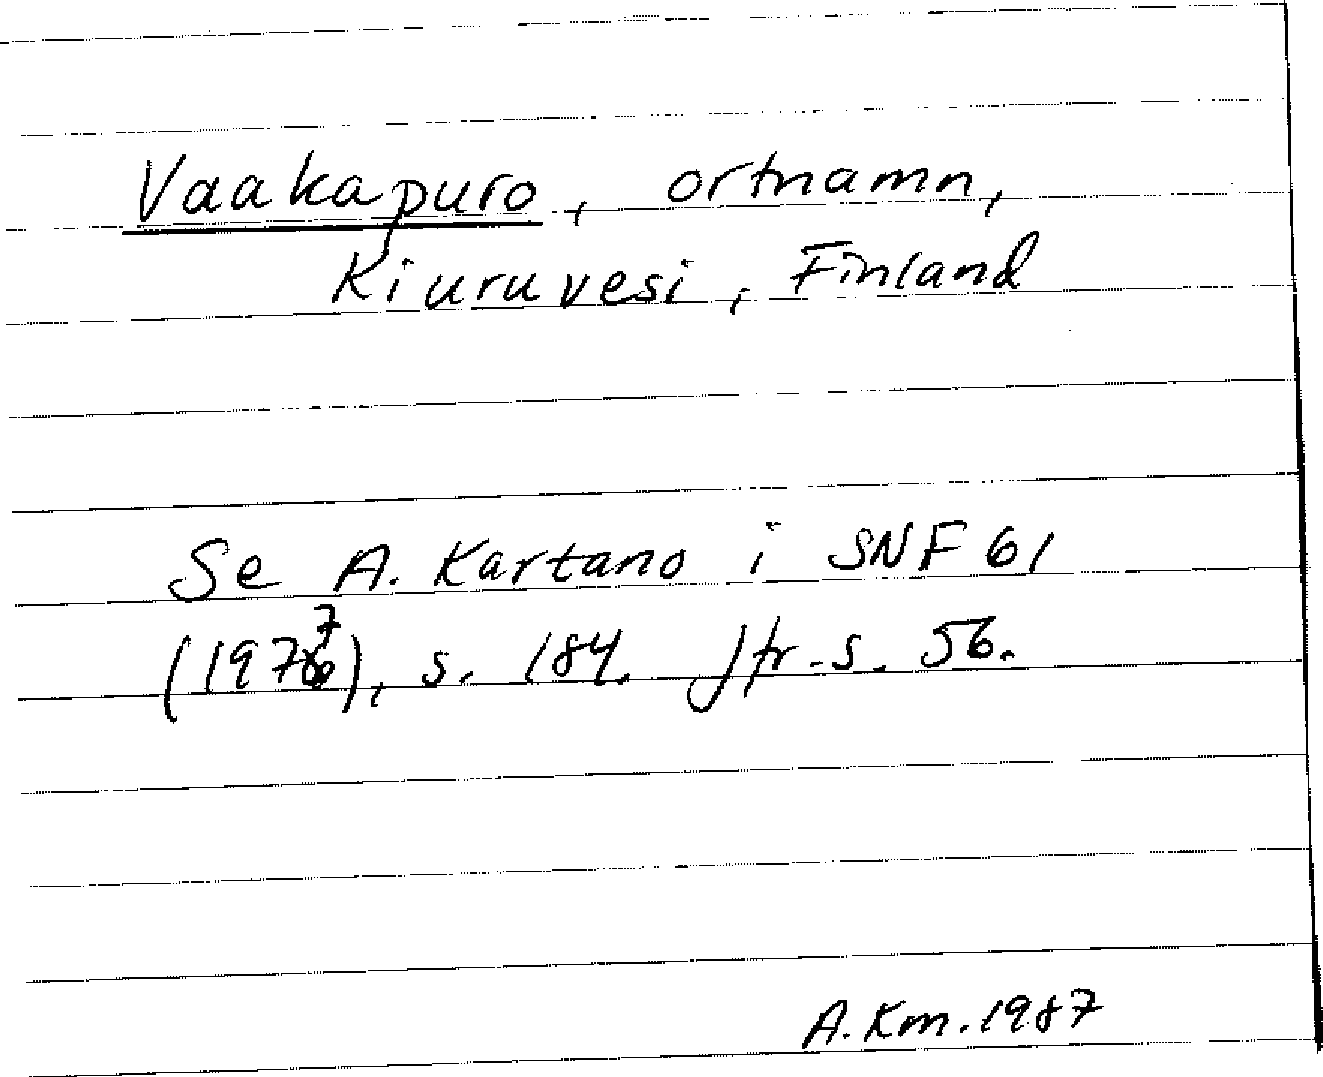 Vaakapuro, ortnamn,
Kiuruvesi, Finland
Se A. Kartano i SNF 61
(1977), s. 184. Jfr s. 56.
A.Km.1987